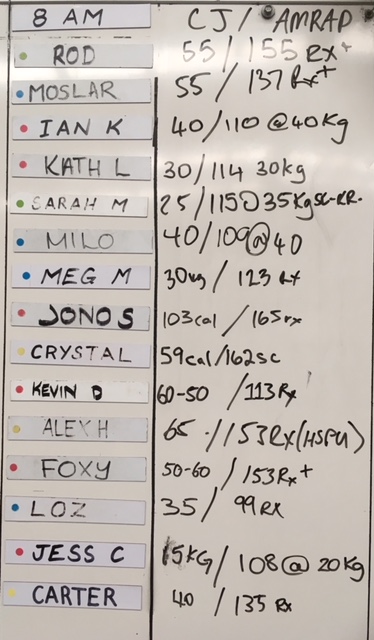 8 AM CJ/ AMRAP
ROD 55/155 Rx+
MOSLAR 55/137 Rx+
IAN K 40/110 @40Kg
KATH L 30/114 30kg
SARAH M 25/115@35Kg
MILO 40/109@40
MEG M 30kg / 123 Rx
JONO S 103cal / 165rx
CRYSTAL 59cal/162sc
KEVIN D 60-50 /113Rx
ALEX H 65 /153RX(HSPU)
FOXY 50-60 / 153Rx+
LOZ 35/ 99 RX
JESS C 15KG/ 108@ 20Kg
CARTER 40 /135 Rx